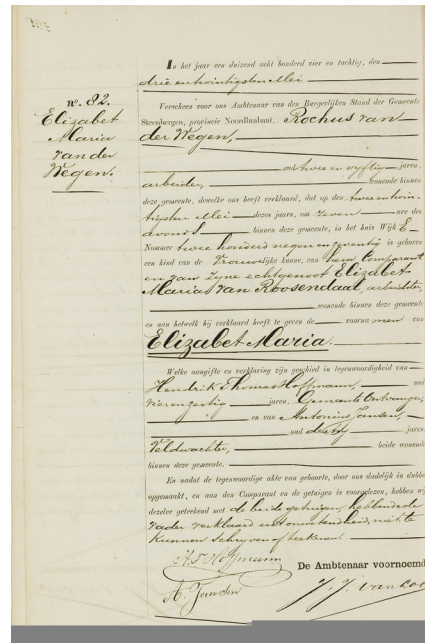 nº. 82.
Elizabet
Maria
van der
Wegen.
In het jaar een duizend acht honderd vier en tachtig, den
drie en twintigsten Mei
Verscheen voor ons Ambtenaar van den Burgerlijken Stand der Gemeente
Steenbergen, provincie Noordbrabant, Rochus van
der Wegen,
oud twee en vyftig jaren,
arbeider, wonende binnen
deze gemeente, dewelke ons heeft verklaard, dat op den twee en twin-
tigsten Mei dezes jaars, om zeven ure des
avonds binnen deze gemeente, in het huis Wijk E
Nommer twee honderd negen en zeventig is geboren
een kind van de Vrouwelijke kunne, van hem Comparant
en van zyne echtgenoot Elizabet
Maria van Roosendaal, arbeidster,
wonende binnen deze gemeente
en aan hetwelk hij verklaard heeft te geven de voornamen van
Elizabet Maria.
Welke aangifte en verklaring zijn geschied in tegenwoordigheid van
Hendrik Thomas Hoffmann, oud
vier en zestig jaren, Gemeente Ontvanger,
en van Antonius Jansen,
oud dertig jaren,
Veldwachter, beide wonende
binnen deze gemeente.
En nadat de tegenwoordige akte van geboorte, door ons dadelijk in dubbel
opgemaakt, en aan den Comparant en de getuigen is voorgelezen, hebben wij
dezelve geteekend met de beide getuigen, hebbende de
vader verklaard uit onwetendheid niet te
kunnen schryven of teekenen.
H. T. Hoffmann
De Ambtenaar voornoemd
A. Jansen
J. J. van